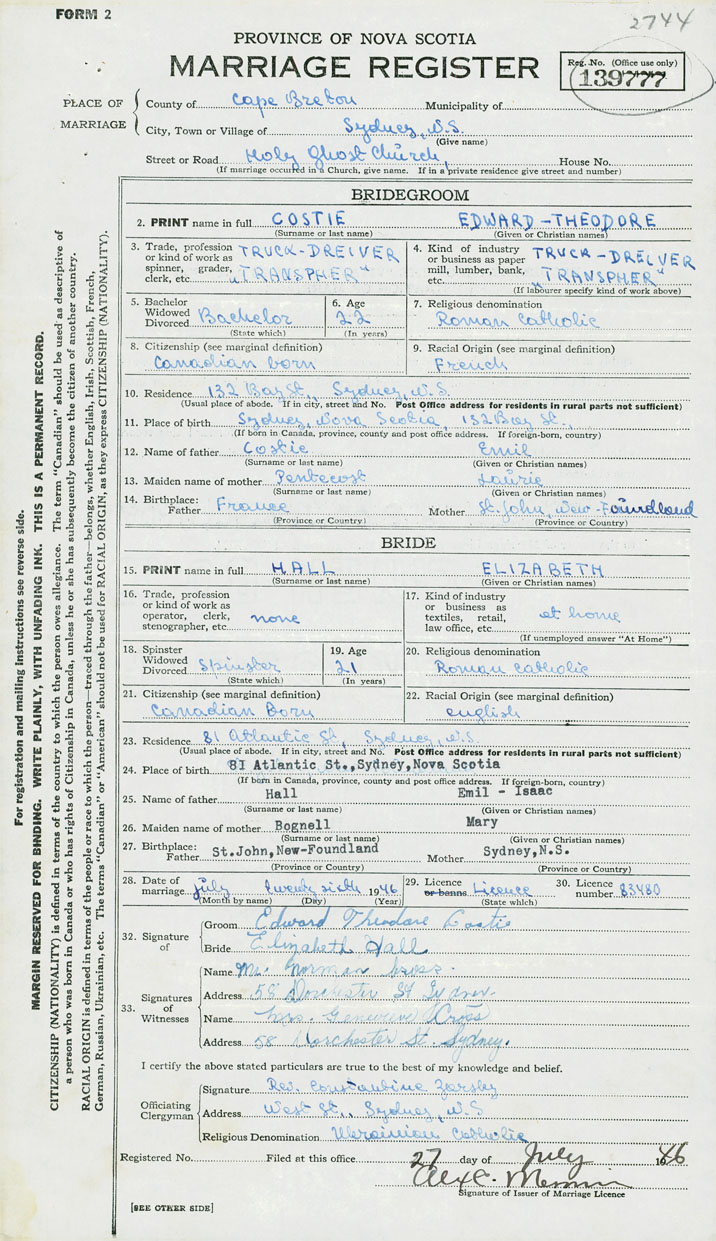 FORM 2
2744
PROVINCE OF NOVA SCOTIA
MARRIAGE REGISTER
Reg. No. (Office use only)
139777
PLACE OF MARRIAGE
County of Cape Breton Municipality of
City, Town or Village of Sydney, N.S.
(Give name)
Street or Road Holy Ghost Church, House No.
(If marriage occurred in a Church, give name. If in a private residence give street and number)
BRIDEGROOM
2. PRINT name in full COSTIE EDWARD-THEODORE
(Surname or last name) (Given or Christian names)
3. Trade, profession or kind of work as spinner, grader, clerk, etc. TRUCK-DREIVER "TRANSPHER"
4. Kind of industry or business as paper mill, lumber, bank, etc. TRUCK-DREIVER "TRANSPHER"
(If labourer specify kind of work above)
5. Bachelor Widowed Divorced Bachelor
(State which)
6. Age 22
(In years)
7. Religious denomination
Roman Catholic
8. Citizenship (see marginal definition)
Canadian born
9. Racial Origin (see marginal definition)
French
10. Residence 132 Bay St., Sydney, N.S.
(Usual place of abode. If in city, street and No. Post Office address for residents in rural parts not sufficient)
11. Place of birth Sydney, Nova Scotia, 132 Bay St.
(If born in Canada, province, county and post office address. If foreign-born, country)
12. Name of father Costie Emil
(Surname or last name) (Given or Christian names)
13. Maiden name of mother Pentecost Laurie
(Surname or last name) (Given or Christian names)
14. Birthplace: Father France Mother St. John, New-Foundland
(Province or Country) (Province or Country)
BRIDE
15. PRINT name in full HALL ELIZABETH
(Surname or last name) (Given or Christian names)
16. Trade, profession or kind of work as operator, clerk, stenographer, etc. none
17. Kind of industry or business as textiles, retail, law office, etc. at home
(If unemployed answer "At Home")
18. Spinster Widowed Divorced Spinster
(State which)
19. Age 21
(In years)
20. Religious denomination
Roman Catholic
21. Citizenship (see marginal definition)
Canadian Born
22. Racial Origin (see marginal definition)
english
23. Residence 81 Atlantic St., Sydney, N.S.
(Usual place of abode. If in city, street and No. Post Office address for residents in rural parts not sufficient)
24. Place of birth 81 Atlantic St.,Sydney,Nova Scotia
(If born in Canada, province, county and post office address. If foreign-born, country)
25. Name of father Hall Emil - Isaac
(Surname or last name) (Given or Christian names)
26. Maiden name of mother Bognell Mary
(Surname or last name) (Given or Christian names)
27. Birthplace: Father St.John,New-Foundland Mother Sydney,N.S.
(Province or Country) (Province or Country)
28. Date of marriage July twenty sixth 1946
(Month by name) (Day) (Year)
29. Licence or banns Licence
(State which)
30. Licence number 83480
32. Signature of
Groom Edward Theodore Costie
Bride Elizabeth Hall
33. Signatures of Witnesses
Name Mr. Norman Cross.
Address 58 Dorchester St Sydney
Name Mrs. Genevieve Cross
Address 58 Dorchester St. Sydney.
I certify the above stated particulars are true to the best of my knowledge and belief.
Officiating Clergyman
Signature Rev. Constantine
Address West St., Sydney, N.S
Religious Denomination Ukrainian Catholic
Registered No. Filed at this office 27 day of July 1946
Alex C.
Signature of Issuer of Marriage Licence
[SEE OTHER SIDE]
For registration and mailing instructions see reverse side.
MARGIN RESERVED FOR BINDING. WRITE PLAINLY, WITH UNFADING INK. THIS IS A PERMANENT RECORD.
CITIZENSHIP (NATIONALITY) is defined in terms of the country to which the person owes allegiance. The term "Canadian" should be used as descriptive of
a person who was born in Canada or who has rights of Citizenship in Canada, unless he or she has subsequently become the citizen of another country.
RACIAL ORIGIN is defined in terms of the people or race to which the person—traced through the father—belongs, whether English, Irish, Scottish, French,
German, Russian, Ukrainian, etc. The terms "Canadian" or "American" should not be used for RACIAL ORIGIN, as they express CITIZENSHIP (NATIONALITY).